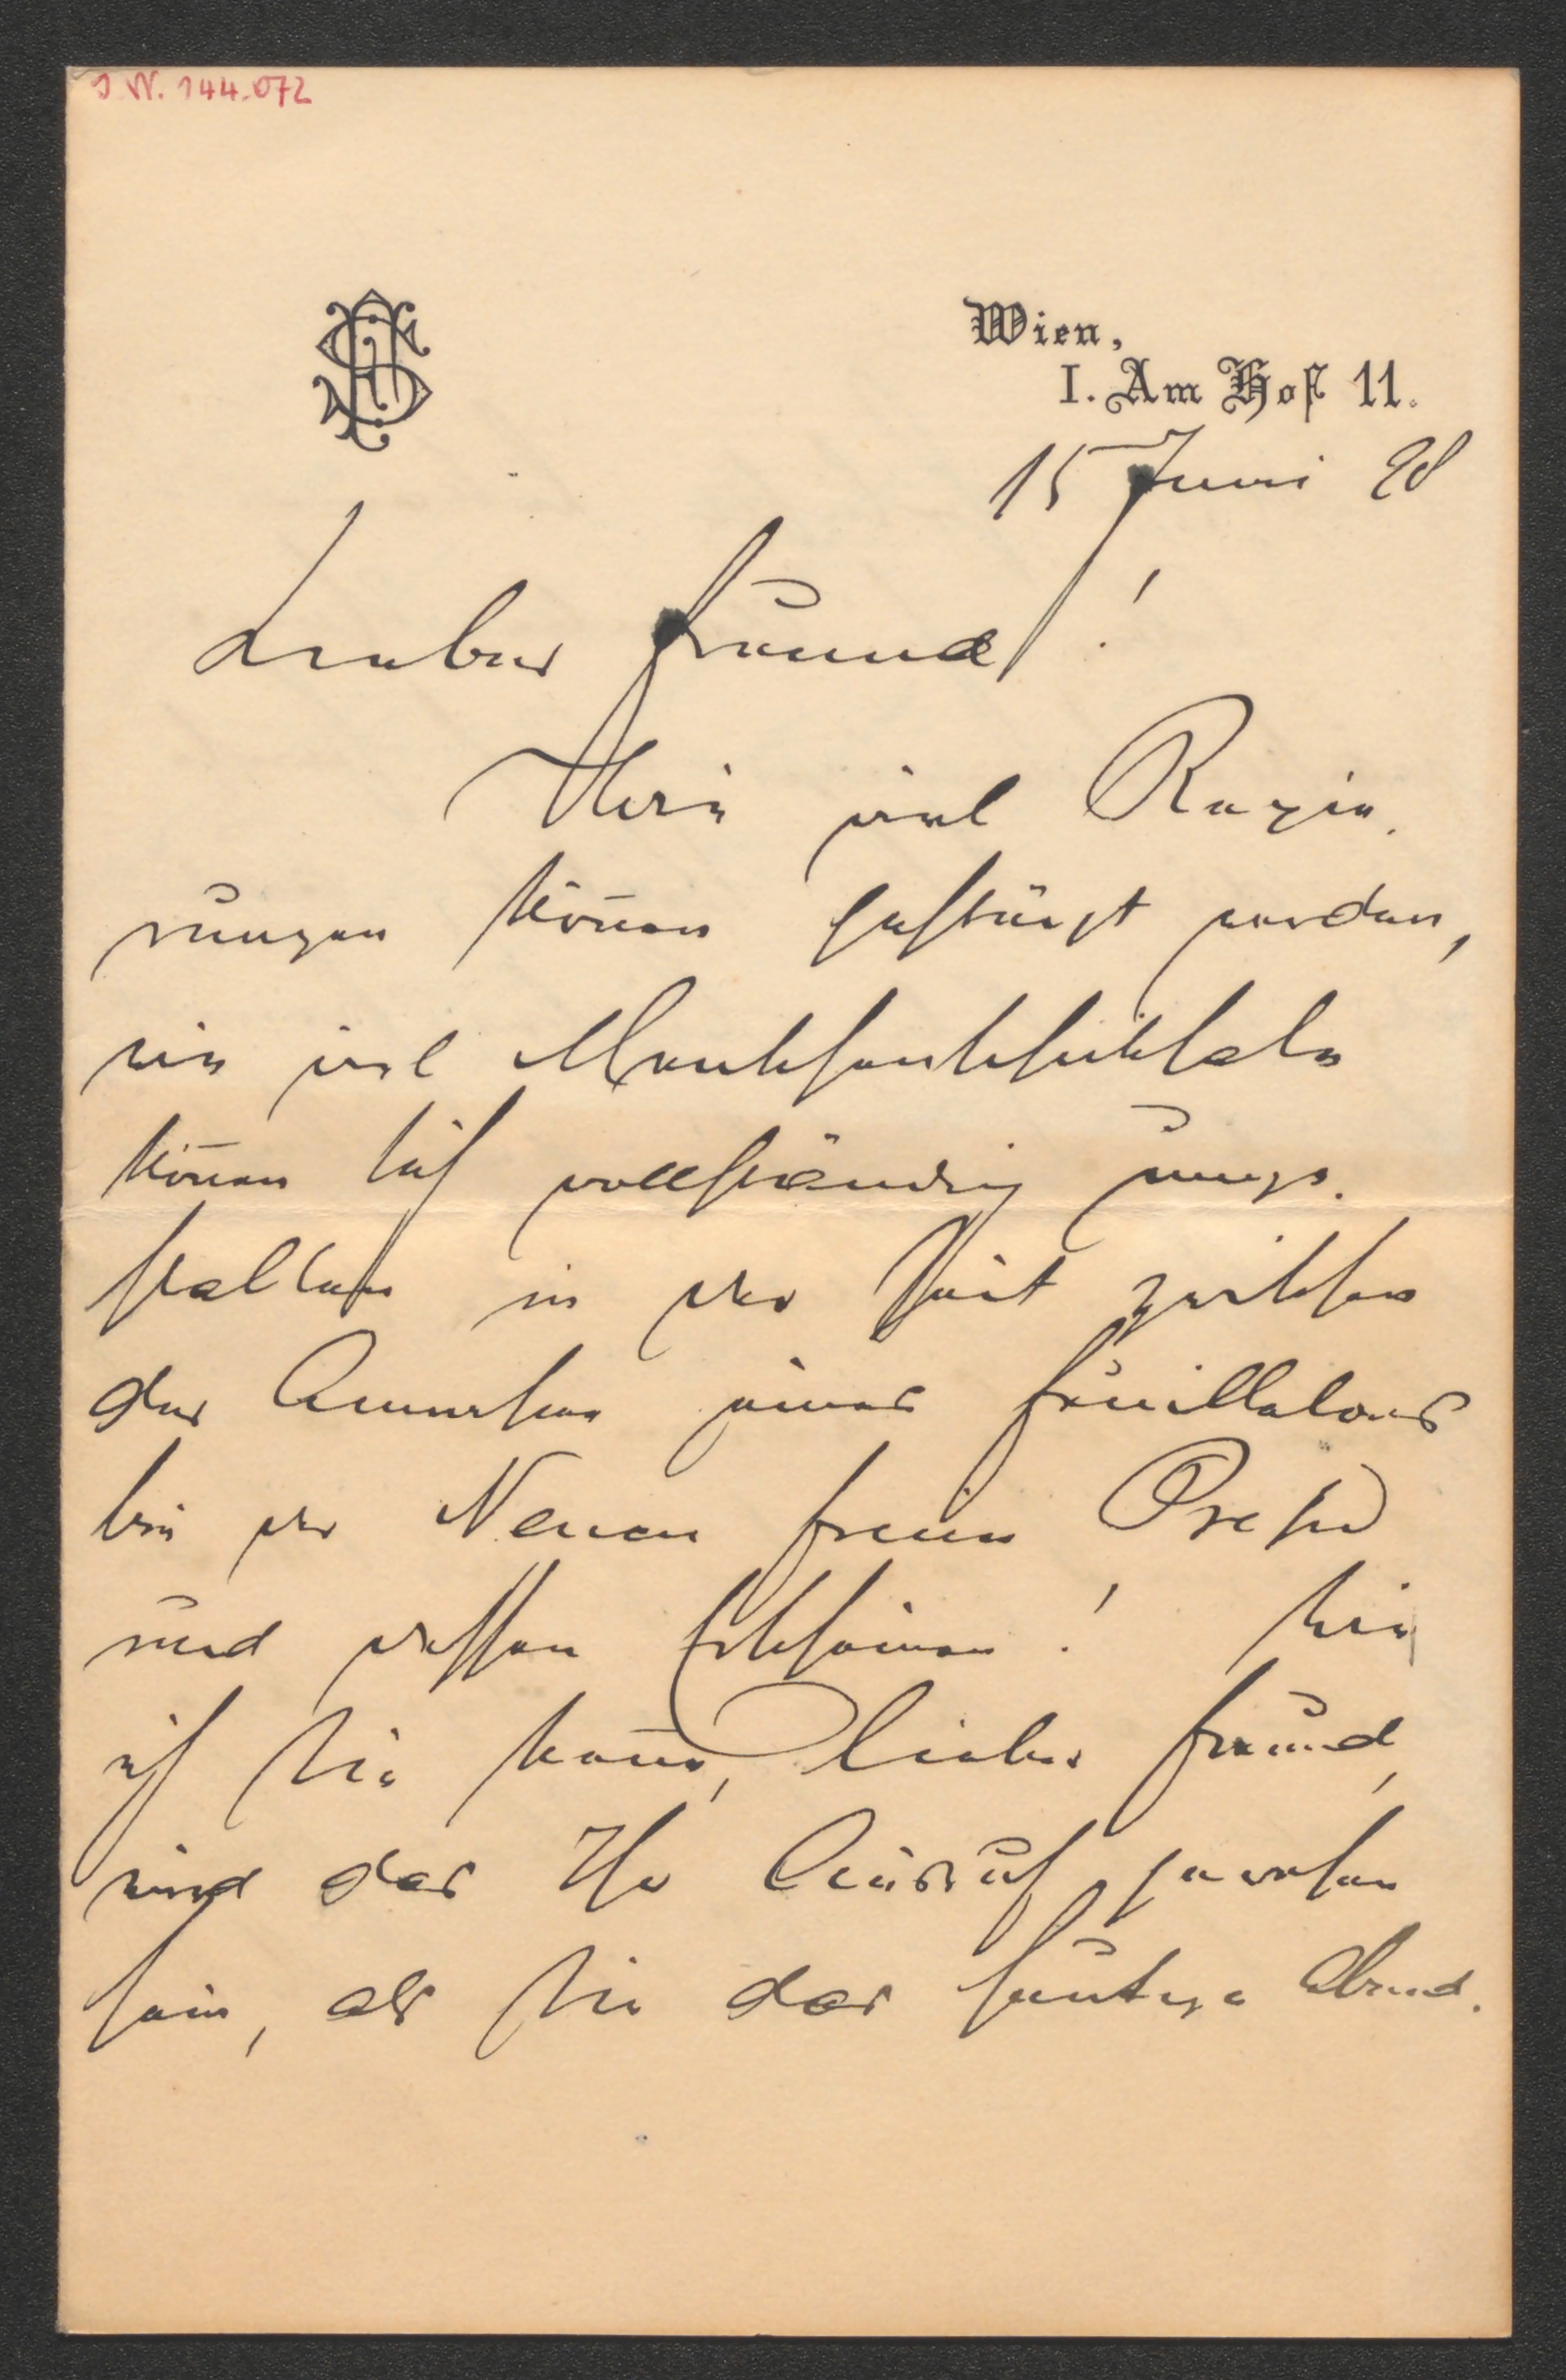 I. N. 144.072
Wien,
I. Am Hof 11.
15 Juni 98
Lieber Freund!
Wie viel Regie-
rungen können gestürzt werden,
wie viel Menschenschicksale
können sich vollständig umge-
stalten in der Zeit zwischen
der Annahme eines Feuilletons
bei der Neuen freien Presse
und dessen Erscheinen! Wie
ich Sie kenne, lieber Freund,
wird das Ihr Ausruf gewesen
sein, als Sie das heutige Abend-